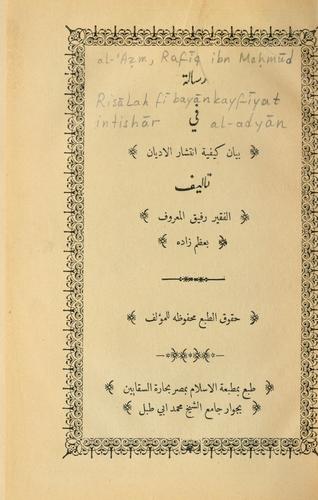 al-'Aẓm, Rafīq ibn Maḥmūd
رسالة
Risālah fī bayān kayfīyat
في
intishār al-adyān
بيان كيفية انتشار الاديان
تأليف
الفقير رفيق المعروف
بعظم زاده
حقوق الطبع محفوظه للمؤلف
طبع بمطبعة الاسلام بمصر بحارة السقايين
بجوار جامع الشيخ محمد ابي طبل